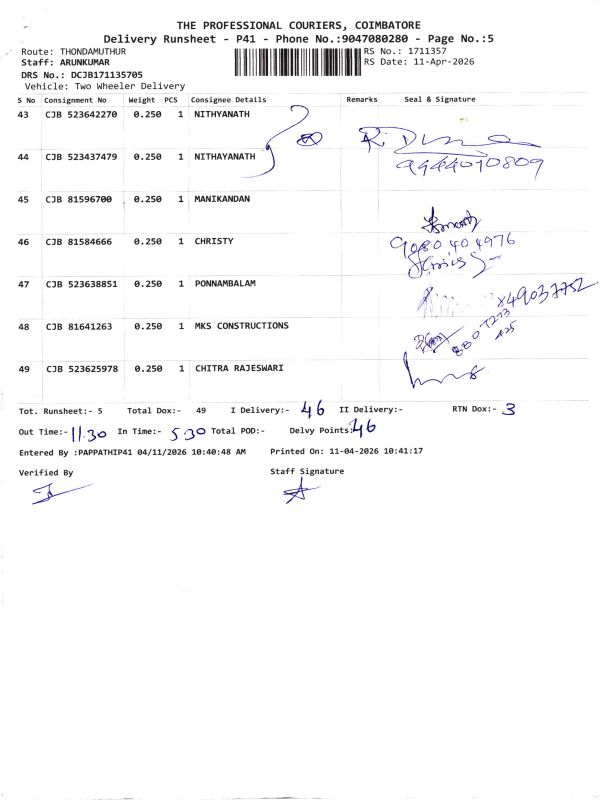 THE PROFESSIONAL COURIERS, COIMBATORE
Delivery Runsheet - P41 - Phone No.:9047080280 - Page No.:5
Route: THONDAMUTHUR RS No.: 1711357
Staff: ARUNKUMAR RS Date: 11-Apr-2026
DRS No.: DCJB171135705
Vehicle: Two Wheeler Delivery
S No Consignment No Weight PCS Consignee Details Remarks Seal & Signature
43 CJB 523642270 0.250 1 NITHYANATH
44 CJB 523437479 0.250 1 NITHAYANATH 9944070809
45 CJB 81596700 0.250 1 MANIKANDAN
46 CJB 81584666 0.250 1 CHRISTY 9080404976
47 CJB 523638851 0.250 1 PONNAMBALAM
48 CJB 81641263 0.250 1 MKS CONSTRUCTIONS
49 CJB 523625978 0.250 1 CHITRA RAJESWARI
Tot. Runsheet:- 5 Total Dox:- 49 I Delivery:- 46 II Delivery:- RTN Dox:- 3
Out Time:- 11.30 In Time:- 5.30 Total POD:- Delvy Points: 46
Entered By :PAPPATHIP41 04/11/2026 10:40:48 AM Printed On: 11-04-2026 10:41:17
Verified By Staff Signature